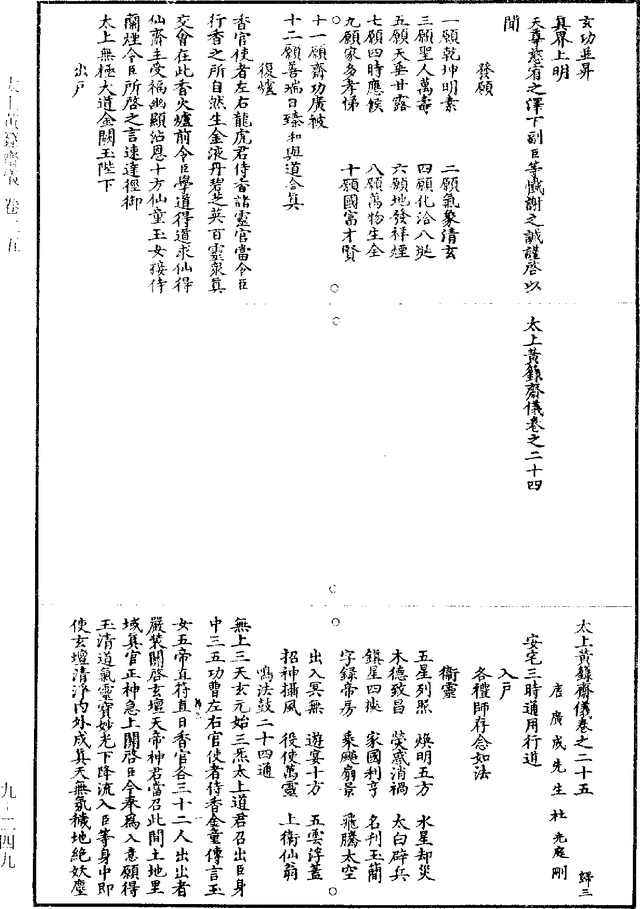 玄功並昇
真界上明
天尊慈宥之澤下副臣等懺謝之誠謹啓以
聞
發願
一願乾坤明素
二願氣象清玄
三願聖人萬壽
四願化洽八埏
五願天垂甘露
六願地發祥煙
七願四時應候
八願萬物生全
九願家多孝悌
十願國富才賢
十一願齋功廣被
十二願善瑞日臻和與道合真
復爐
香官使者左右龍虎君侍香諸靈官當令臣
行香之所自然生金液丹碧芝英百靈衆真
交會在此香火爐前令臣學道得道求仙得
仙齋主受福幽顯沾恩十方仙童玉女接侍
蘭煙令臣所啓之言速達徑御
太上無極大道金闕玉陛下
出戶
太上黃籙齋儀卷之二十四
太上黃籙齋儀卷之二十五
唐廣成先生杜光庭刪
歸三
安宅三時通用行道
入戶
各禮師存念如法
衞靈
五星列照 煥明五方 水星却災
木德致昌 熒惑消禍 太白辟兵
鎮星四據 家國利亨 名刊玉簡
字錄帝房 乘飈扇景 飛騰太空
出入冥無 遊宴十方 五雲浮蓋
招神攝風 役使萬靈 上衞仙翁
鳴法鼓二十四通
無上三天玄元始三炁太上道君召出臣身
中三五功曹左右官使者侍香金童傳言玉
女五帝直符直日香官各三十二人出出者
嚴裝關啓玄壇天帝神君當召此間土地里
域真官正神急上關啓臣今奉為入意願得
玉清道氣靈寶妙光下降流入臣等身中即
使玄壇清淨內外成真天無氛穢地絕妖塵
太上黃籙齋儀 卷二五
九－二四九